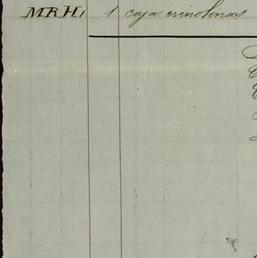 MRH, 1 caja crinolinas